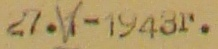 27.VI-1943г.